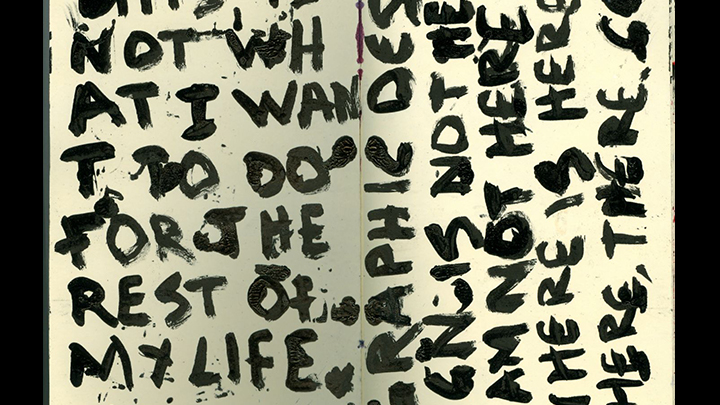 NOT WH
AT I WAN
T TO DO
FOR THE
REST OF
MY LIFE.
RAPHIC DES
GN: IS NOT HE
AM NOT HERE
HERE IS HERE
HERE, THERE.